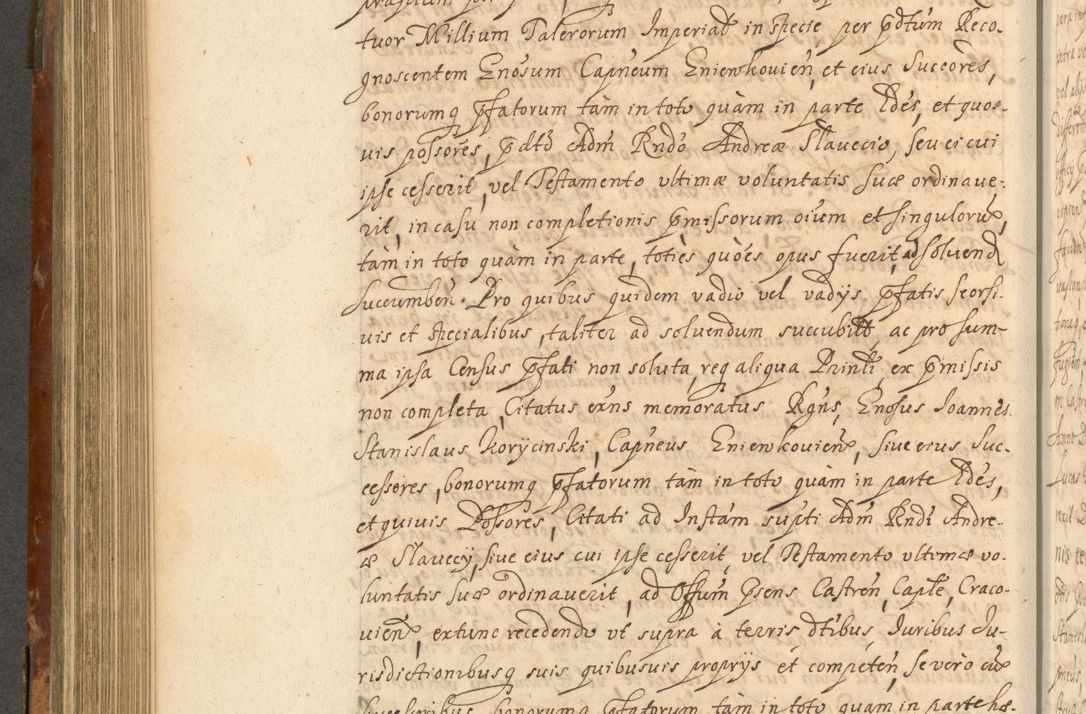 tuor Millium Talerorum Imperiad in specie per pdtum Reco-
gnoscentem Gnosum Capneum Gniewkovien, et eius Succores,
bonorumq pfatorum tàm in toto quàm in parte Hdes, et quos-
uis possores, pdtd Adm Rndo Andreæ Slavecio, seu ei cui
ipse cesserit, vel Testamento vltimæ voluntatis suæ ordinaue-
rit, in casu non completionis pmissorum oium et singuloru,
tàm in toto quàm in parte, toties quoes opus fuerit, ad solvend
succumben. Pro quibus quidem vadio vel vadijs pfatis seorsi-
uis et specialibus, taliter ad soluendum succubitt, ac pro sum-
ma ipsa Census pfati non soluta, req aliqua Printi, ex pmissis
non completa, Citatus exns memoratus Rgns, Gnosus Joannes
Stanislaus Korycinski, Capneus Gniewkovien, siue eius Suc-
cessores, bonorumq pfatorum tàm in toto quàm in parte Hdes,
et quiuis Possores, Citati ad Instam supti Adm Rndi Andre-
æ Slavecij, siue eius cui ipse cesserit, vel Testamento vltimæ vo-
luntatis suæ ordinauerit, ad Offum psens Castren, Caple, Craco-
uien, extunc recedendo vt supra à terris dtibus, Iuribus Iu-
risdictionibusq suis quibusuis proprijs et competen, se vero cu
bonorumq pfatorum tàm in toto quàm in parte hæ-